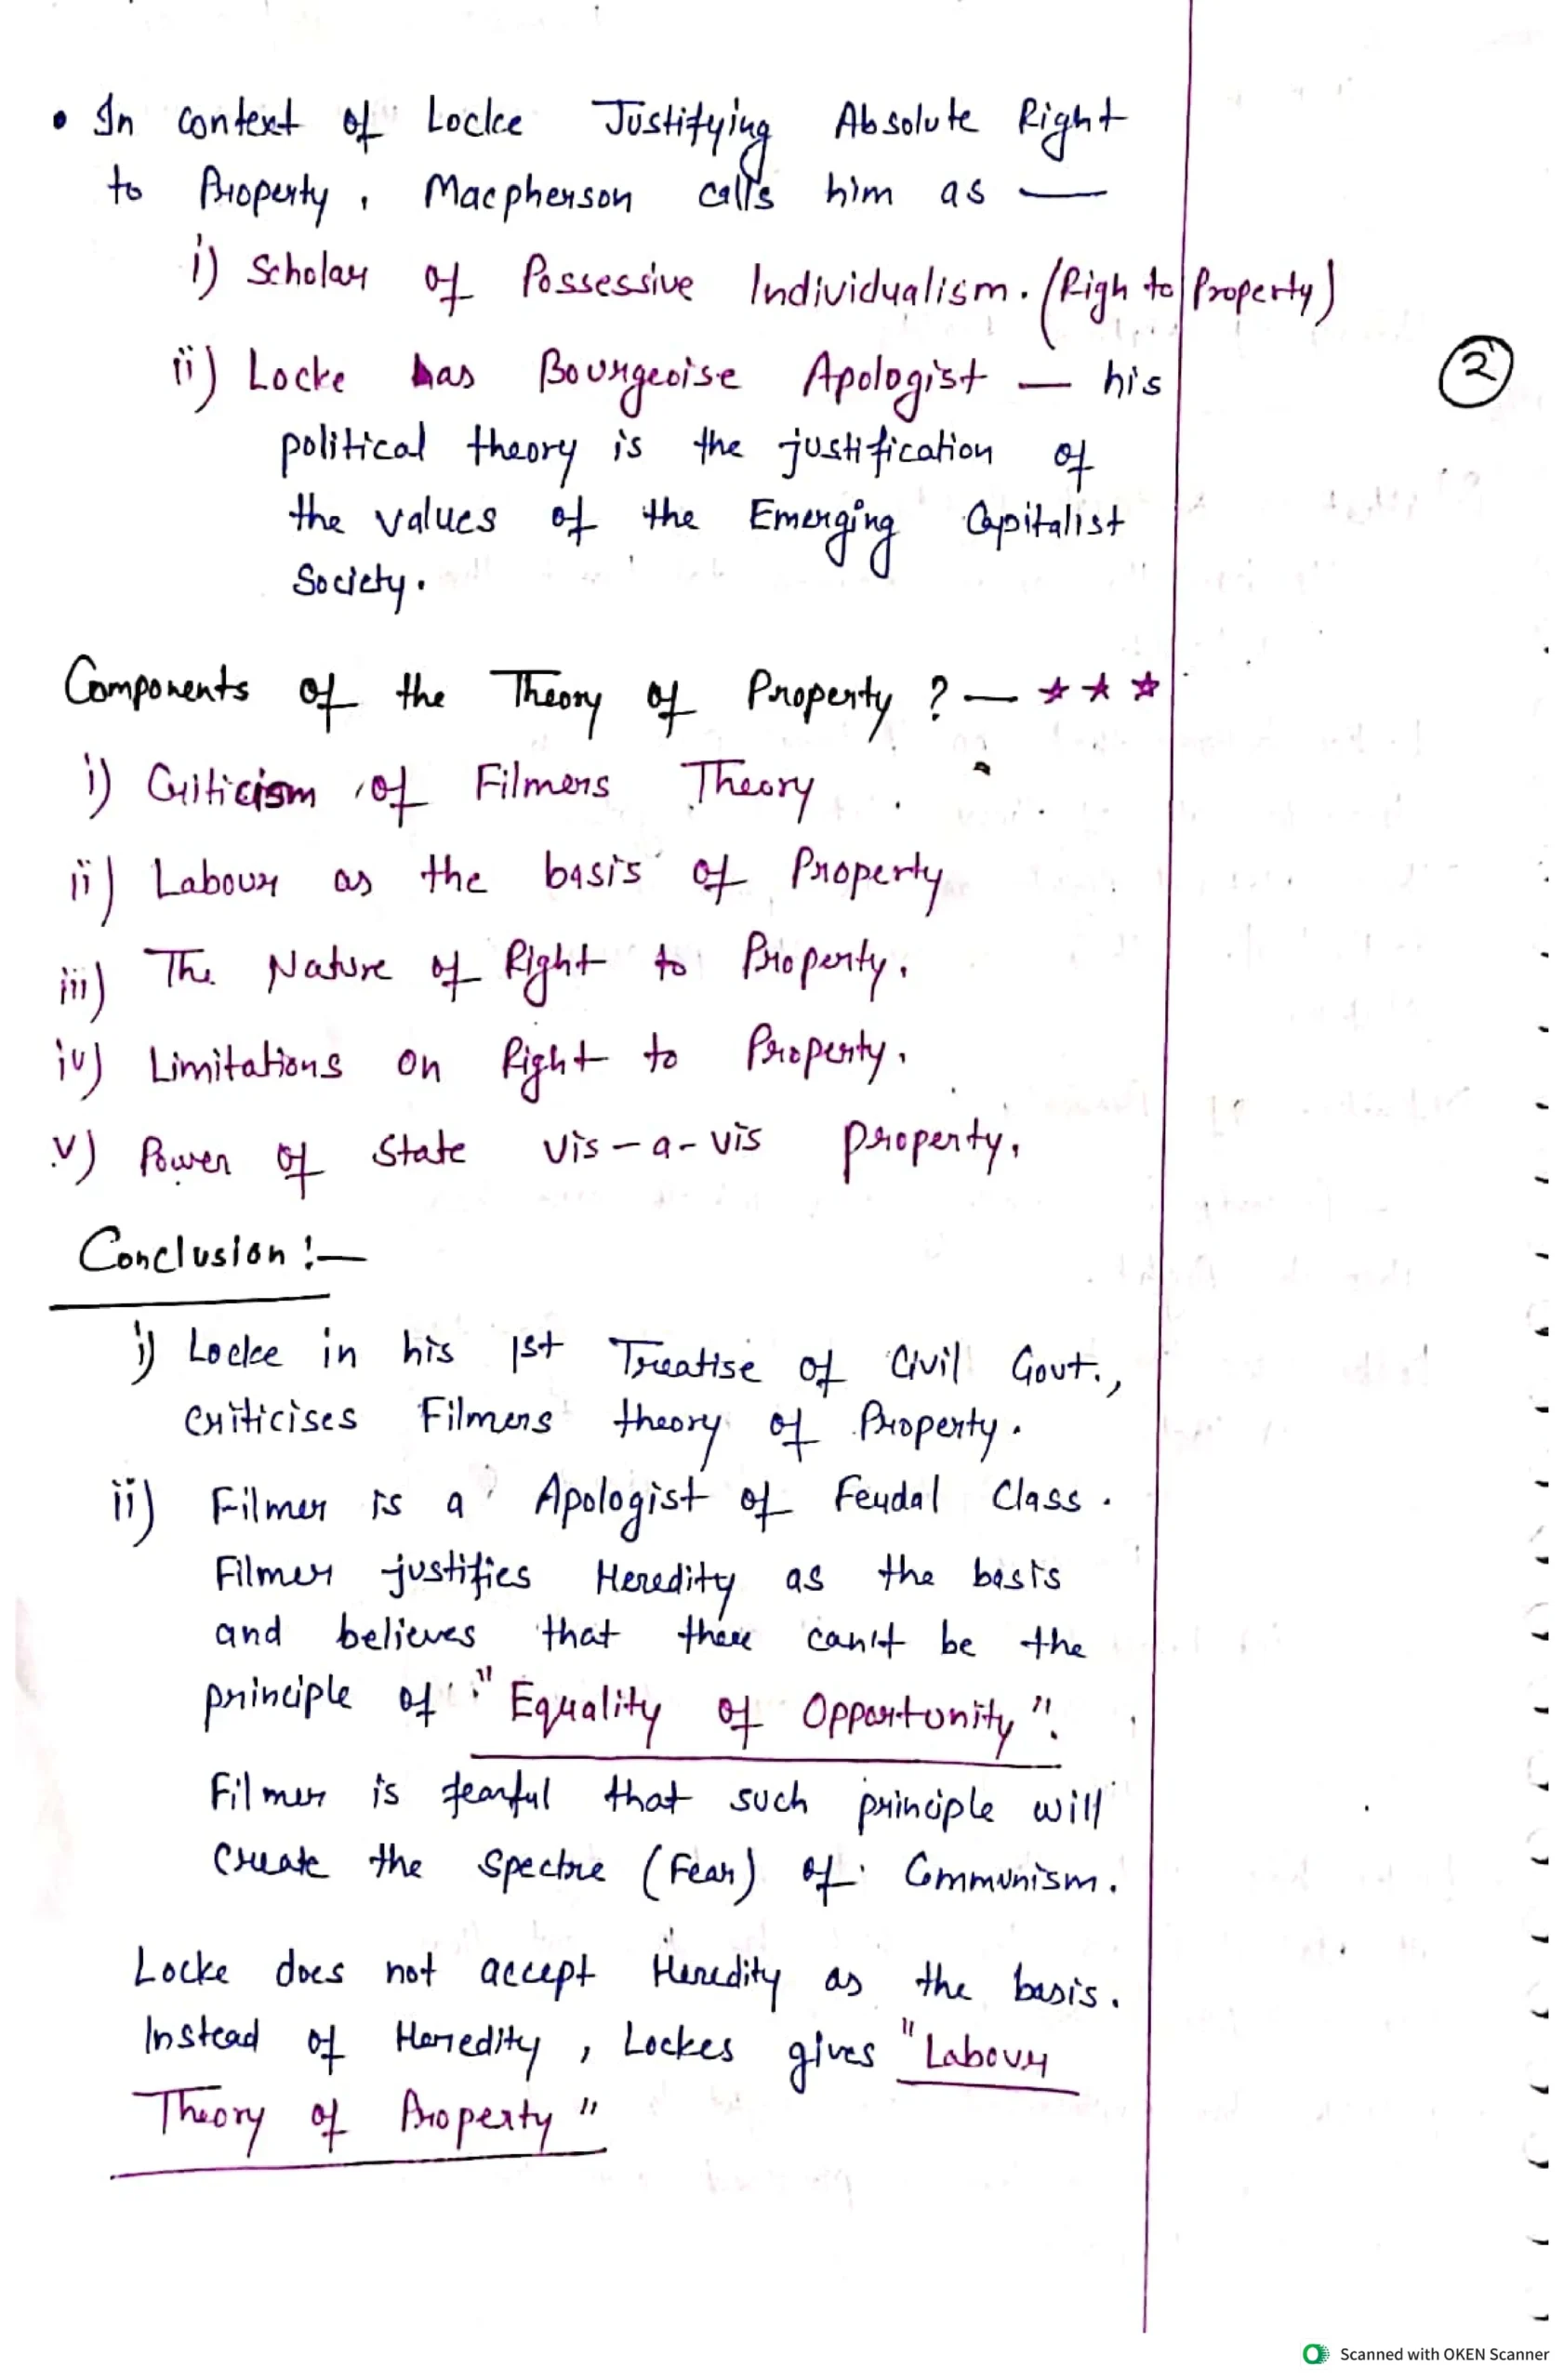 • In context of Locke Justifying Absolute Right
to Property, Macpherson calls him as —
i) Scholar of Possessive Individualism. (Righ to Property)
ii) Locke has Bourgeoise Apologist — his
②
political theory is the justification of
the values of the Emerging Capitalist
Society.
Components of the Theory of Property ? — ★ ★ ★
i) Criticism of Filmers Theory
ii) Labour as the basis of Property
iii) The Nature of Right to Property.
iv) Limitations on Right to Property.
v) Power of State vis-a-vis property.
Conclusion :—
i) Locke in his 1st Treatise of Civil Govt.,
criticises Filmers theory of Property.
ii) Filmer is a Apologist of Feudal Class.
Filmer justifies Heredity as the basis
and believes that there can't be the
principle of "Equality of Opportunity".
Filmer is fearful that such principle will
create the spectre (Fear) of Communism.
Locke does not accept Heredity as the basis.
Instead of Heredity, Lockes gives "Labour
Theory of Property"
Scanned with OKEN Scanner